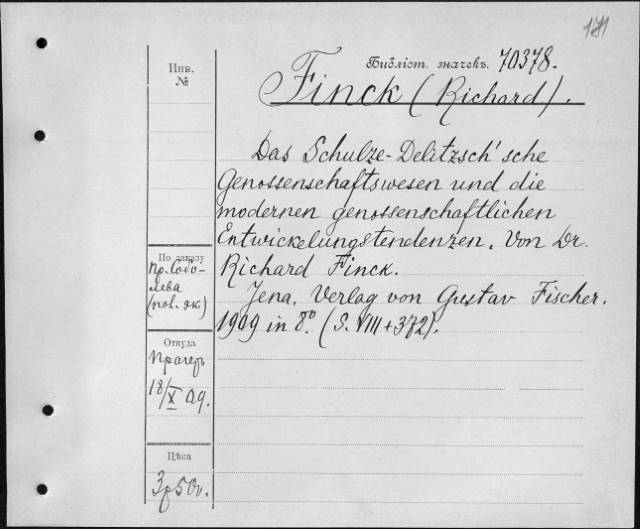 Инв.
№
Библіот. значекъ. 70378.
Finck (Richard).
Das Schulze-Delitzsch'sche
Genossenschaftswesen und die
modernen genossenschaftlichen
Entwickelungstendenzen. Von Dr.
Richard Finck.
Jena, Verlag von Gustav Fischer.
1909 in 8º. (S. VIII + 372).
По заказу
пр. Собо-
лева
(пов. эк)
Откуда
18/X 09.
Цѣна
3р50к.